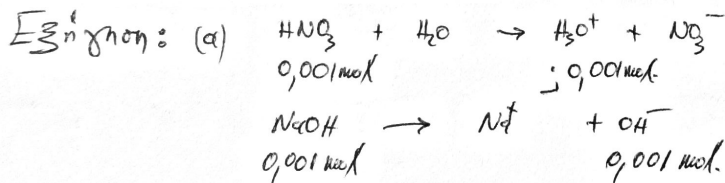 Εξήγηση: (α) HNO₃ + H₂O → H₃O⁺ + NO₃⁻
0,001mol ; 0,001mol.
NaOH → Na⁺ + OH⁻
0,001 mol 0,001 mol.